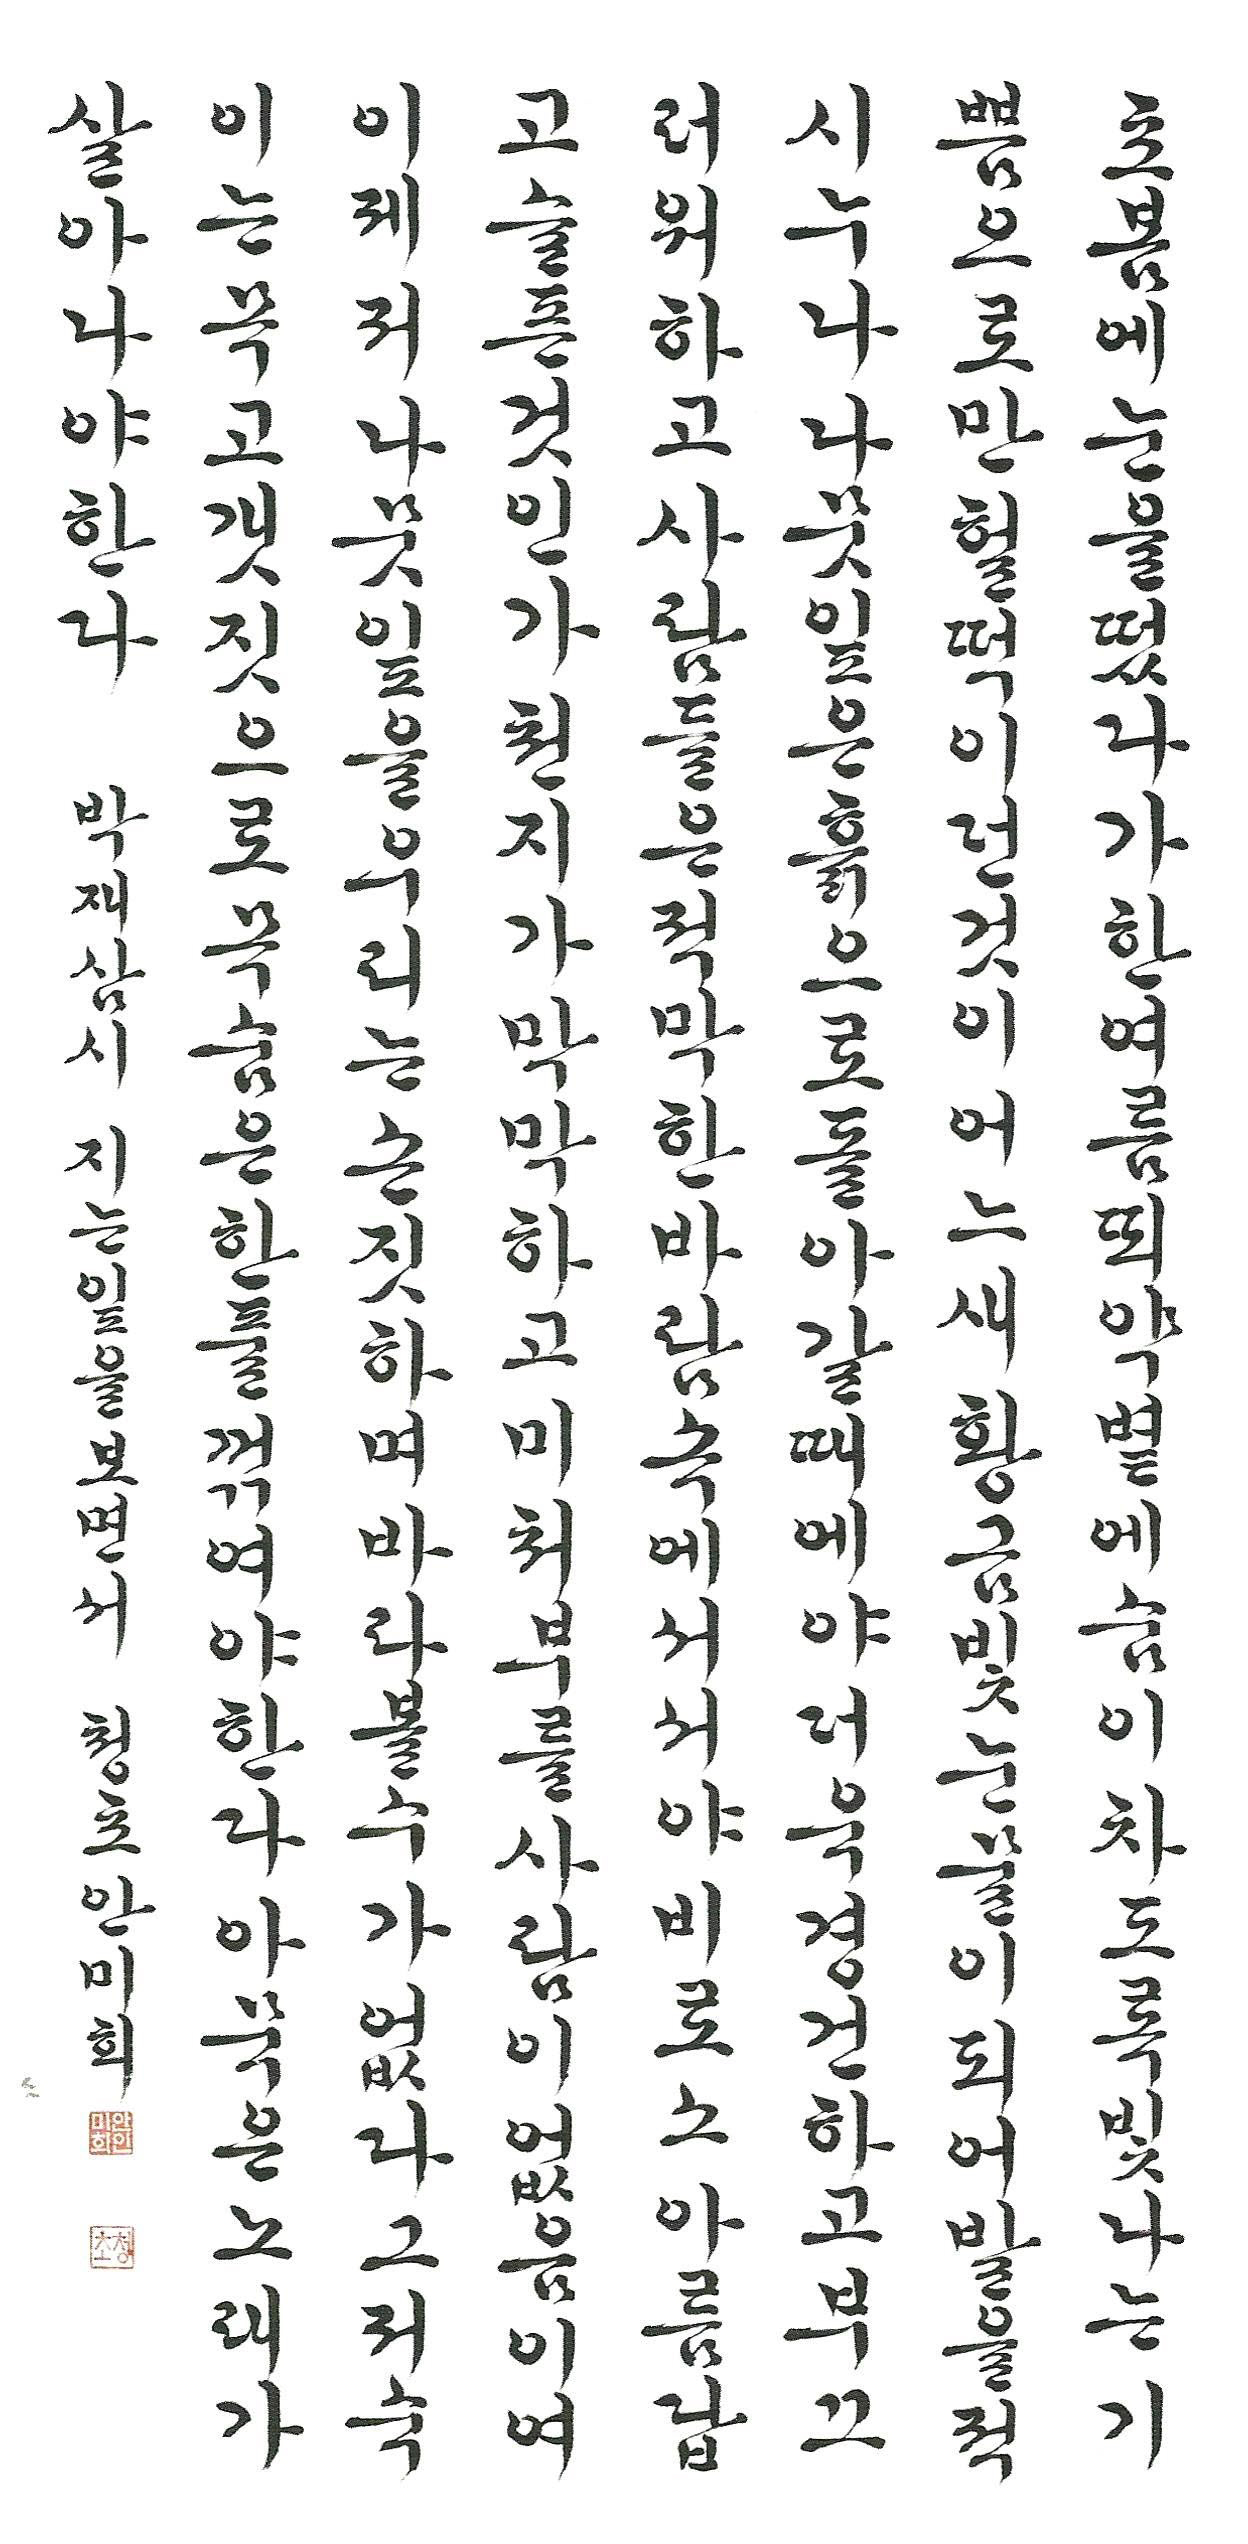 초봄에눈을떴다가한여름뙤약볕에숨이차도록빛나는기
쁨으로만헐떡이던것이어느새황금빛눈물이되어발을적
시누나나뭇잎은흙으로돌아갈때에야더욱경건하고부끄
러워하고사람들은적막한바람속에서서야비로소아름답
고슬픈것인가천지가막막하고미처부를사람이없음이여
이제저나뭇잎을우리는손짓하며바라볼수가없다그저숙
이는목고갯짓으로목숨은한풀꺾여야한다아묵은노래가
살아나야한다 박재삼시 지는잎을보면서 청초안미희
안인미희
청초